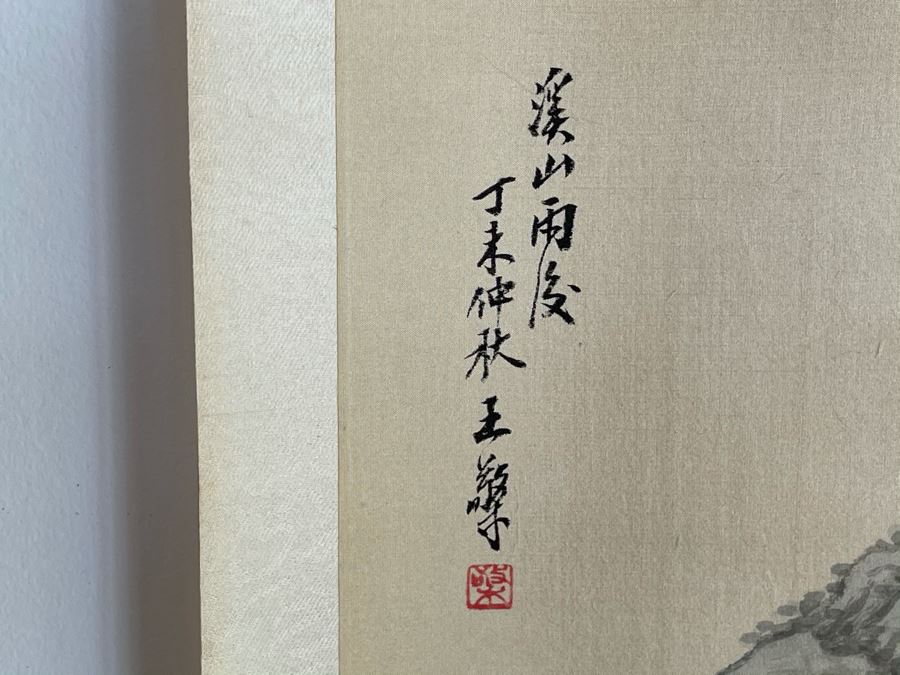 溪山雨後
丁未仲秋 王